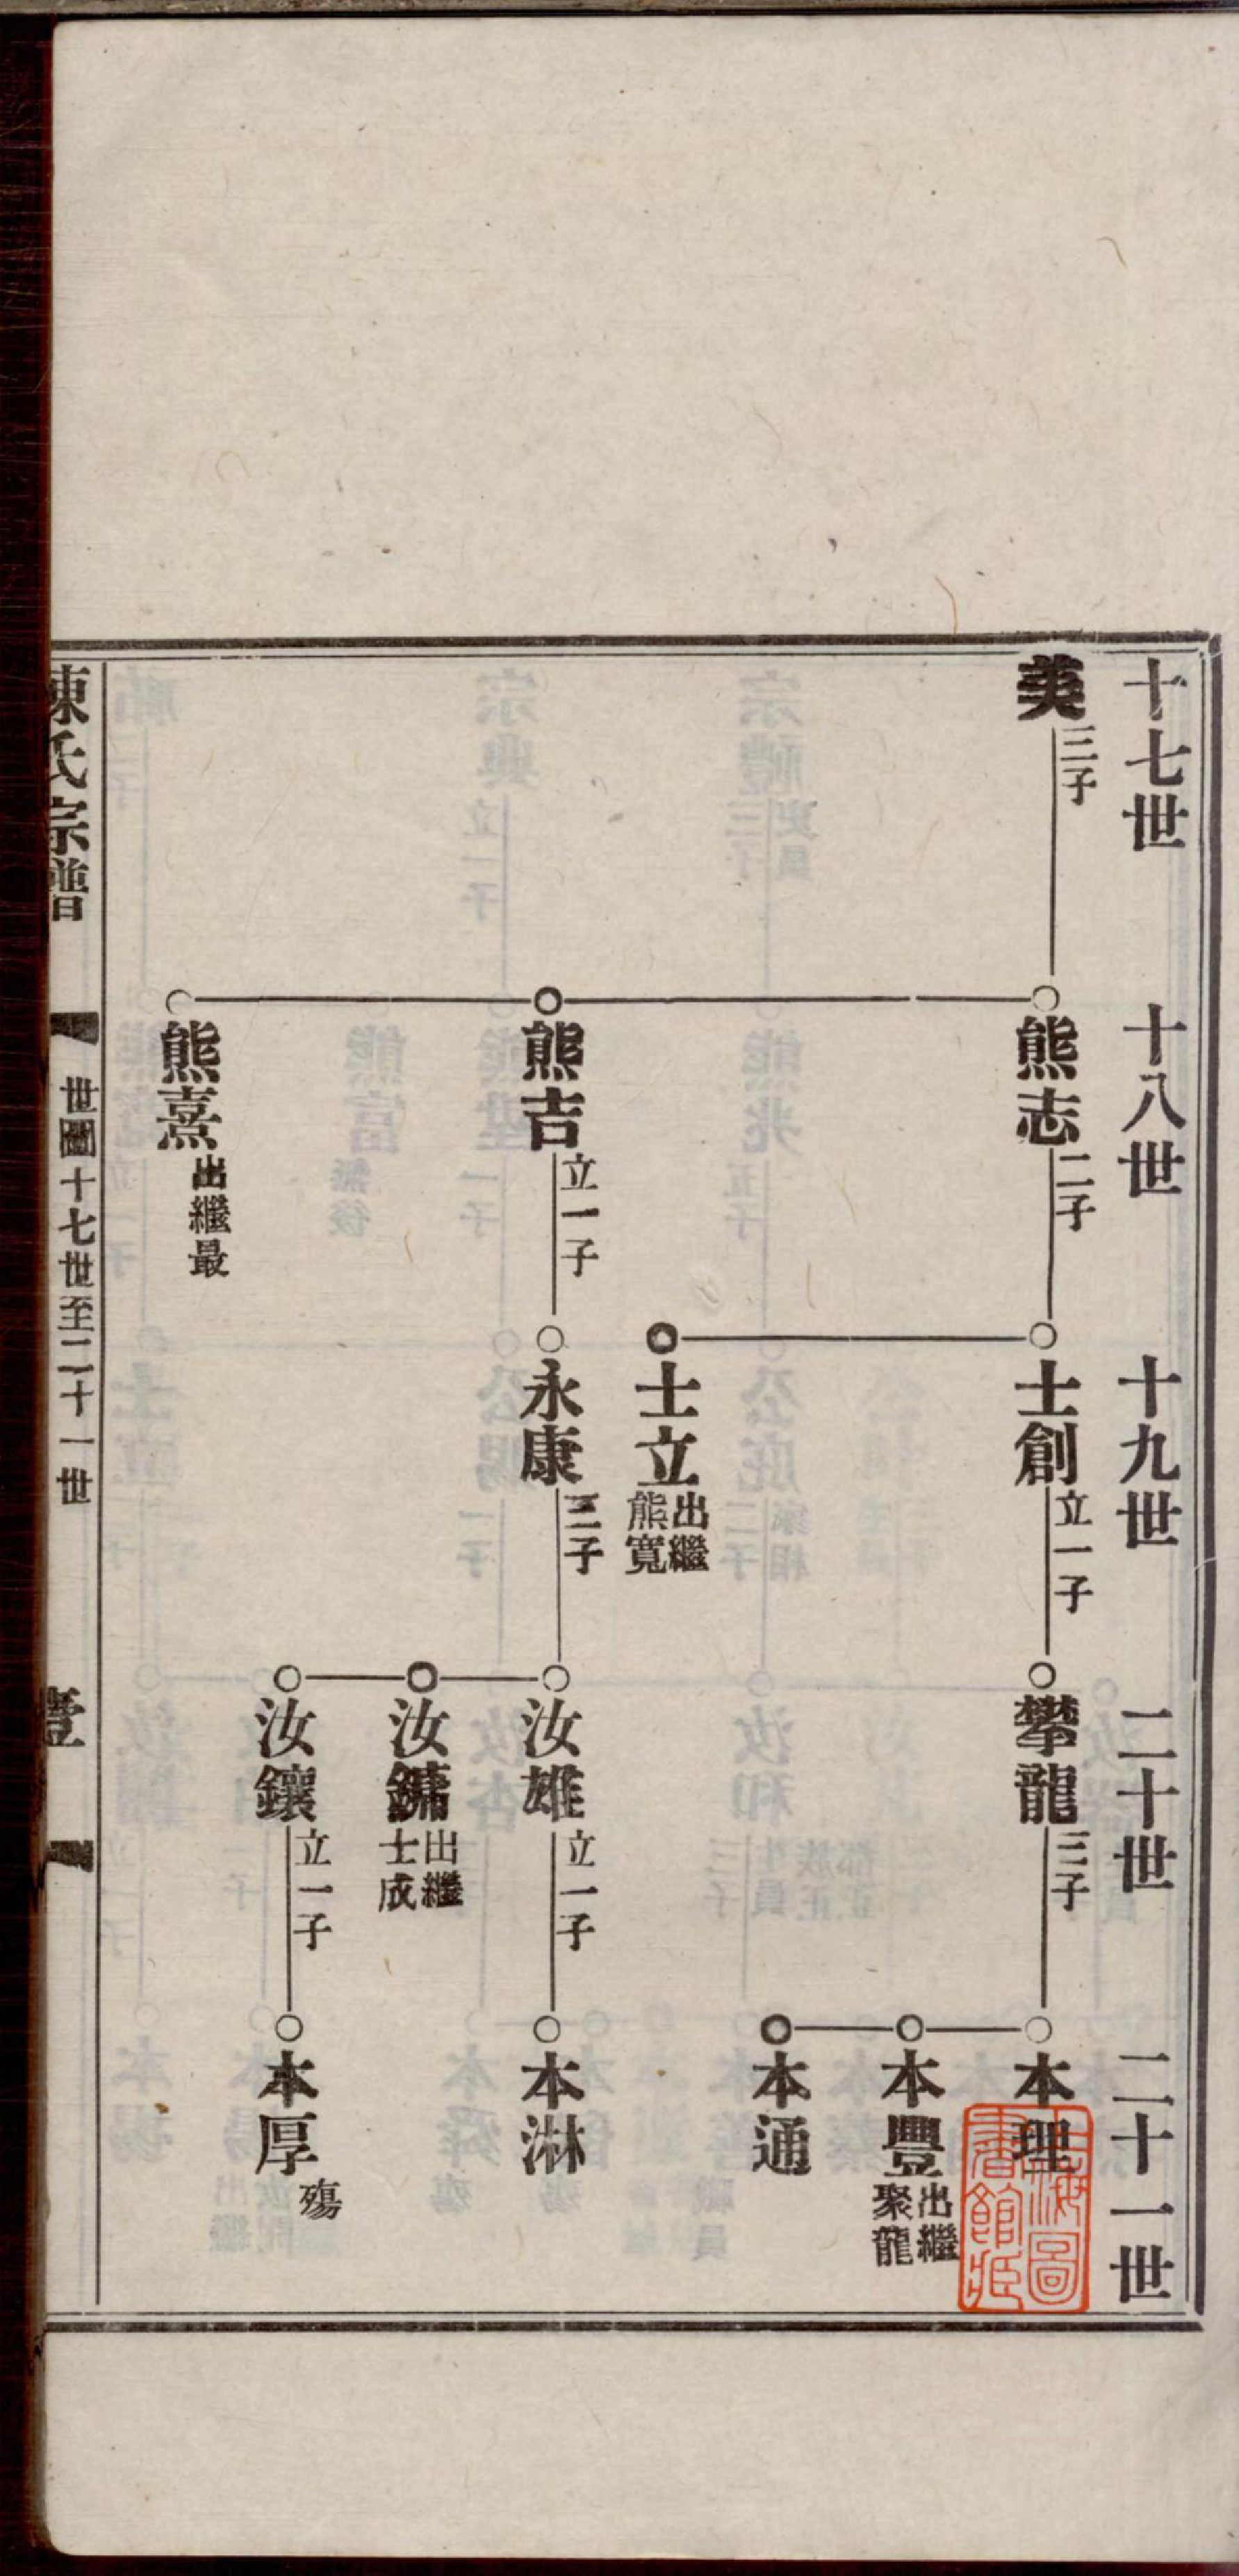 十七世
十八世
十九世
二十世
二十一世
美
三子
熊志
二子
士創
立一子
攀龍
三子
本理
本豐
出繼
聚龍
本通
士立
出繼
熊寬
熊吉
立一子
永康
三子
汝雄
立一子
本淋
汝鏞
出繼
士成
汝鑲
立一子
本厚
殤
熊熹
出繼最
陳氏宗譜
世圖十七世至二十一世
壹
上海圖
書館藏